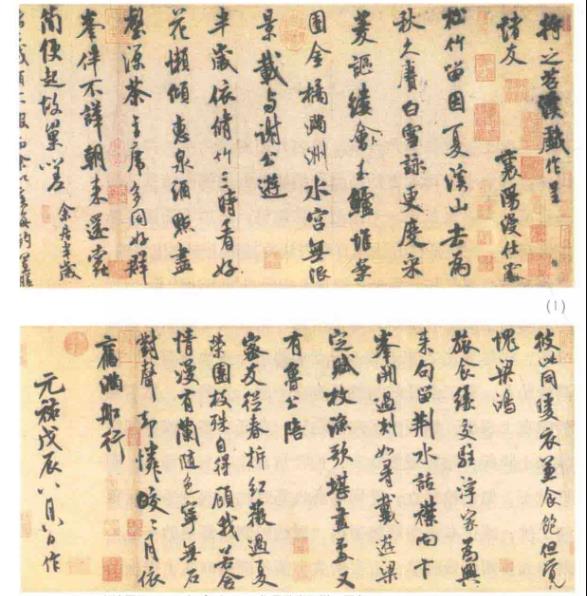 將之苕溪戲作呈
諸友
襄陽漫仕黻
松竹留因夏溪山去為
秋久賡白雪詠更度采
菱謳縷會玉鱸堆案
團金橘滿洲水宮無限
景載與謝公遊
半歲依脩竹三時看好
花懶傾惠泉酒點盡
壑源茶主席多同好群
峯伴不譁朝來還蠹
簡便起故巢嗟 余居半歲
諸友載酒不輟而余以疾每約置膳
(1)
彼此同煖衣兼食飽但覺
愧梁鴻
旅食緣交駐浮家為興
來句留荊水話襟向卞
峯開過剡如尋戴遊梁
定賦枚漁歌堪畫處又
有魯公陪
密友從春拆紅薇過夏
榮團枝殊自得顧我若含
情漫有蘭隨色寧無石
對聲却憐皎皎月依
舊滿船行
元祐戊辰八月八日作